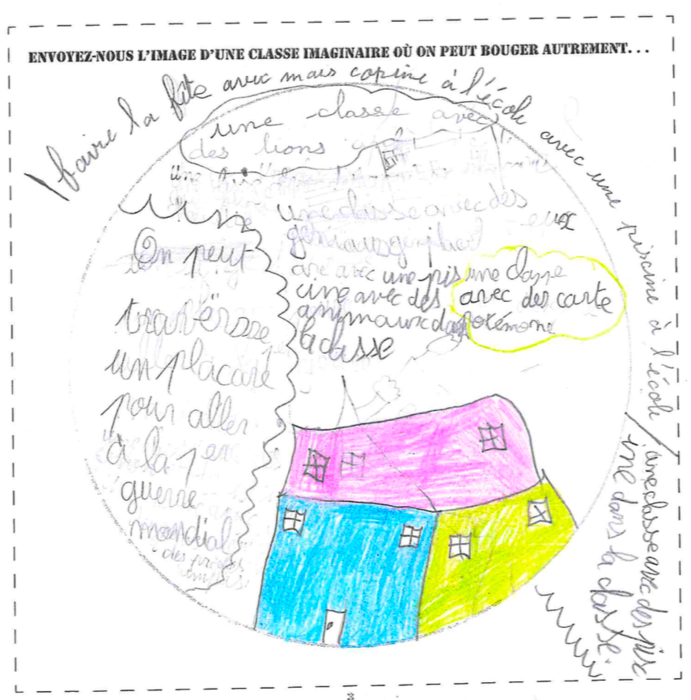 ENVOYEZ-NOUS L'IMAGE D'UNE CLASSE IMAGINAIRE OÙ ON PEUT BOUGER AUTREMENT...
faire la fête avec mais copine à l'école avec une piscine à l'école
une classe avec
des lions
une classe avec des
avec une pis
cine avec des
animaux da
la classe
une classe
avec des carte
potémone
On peut
traversse
un placare
pour aller
à la 1er
guerre
mondial
une classe avec des pis
ine dans la classe.
3